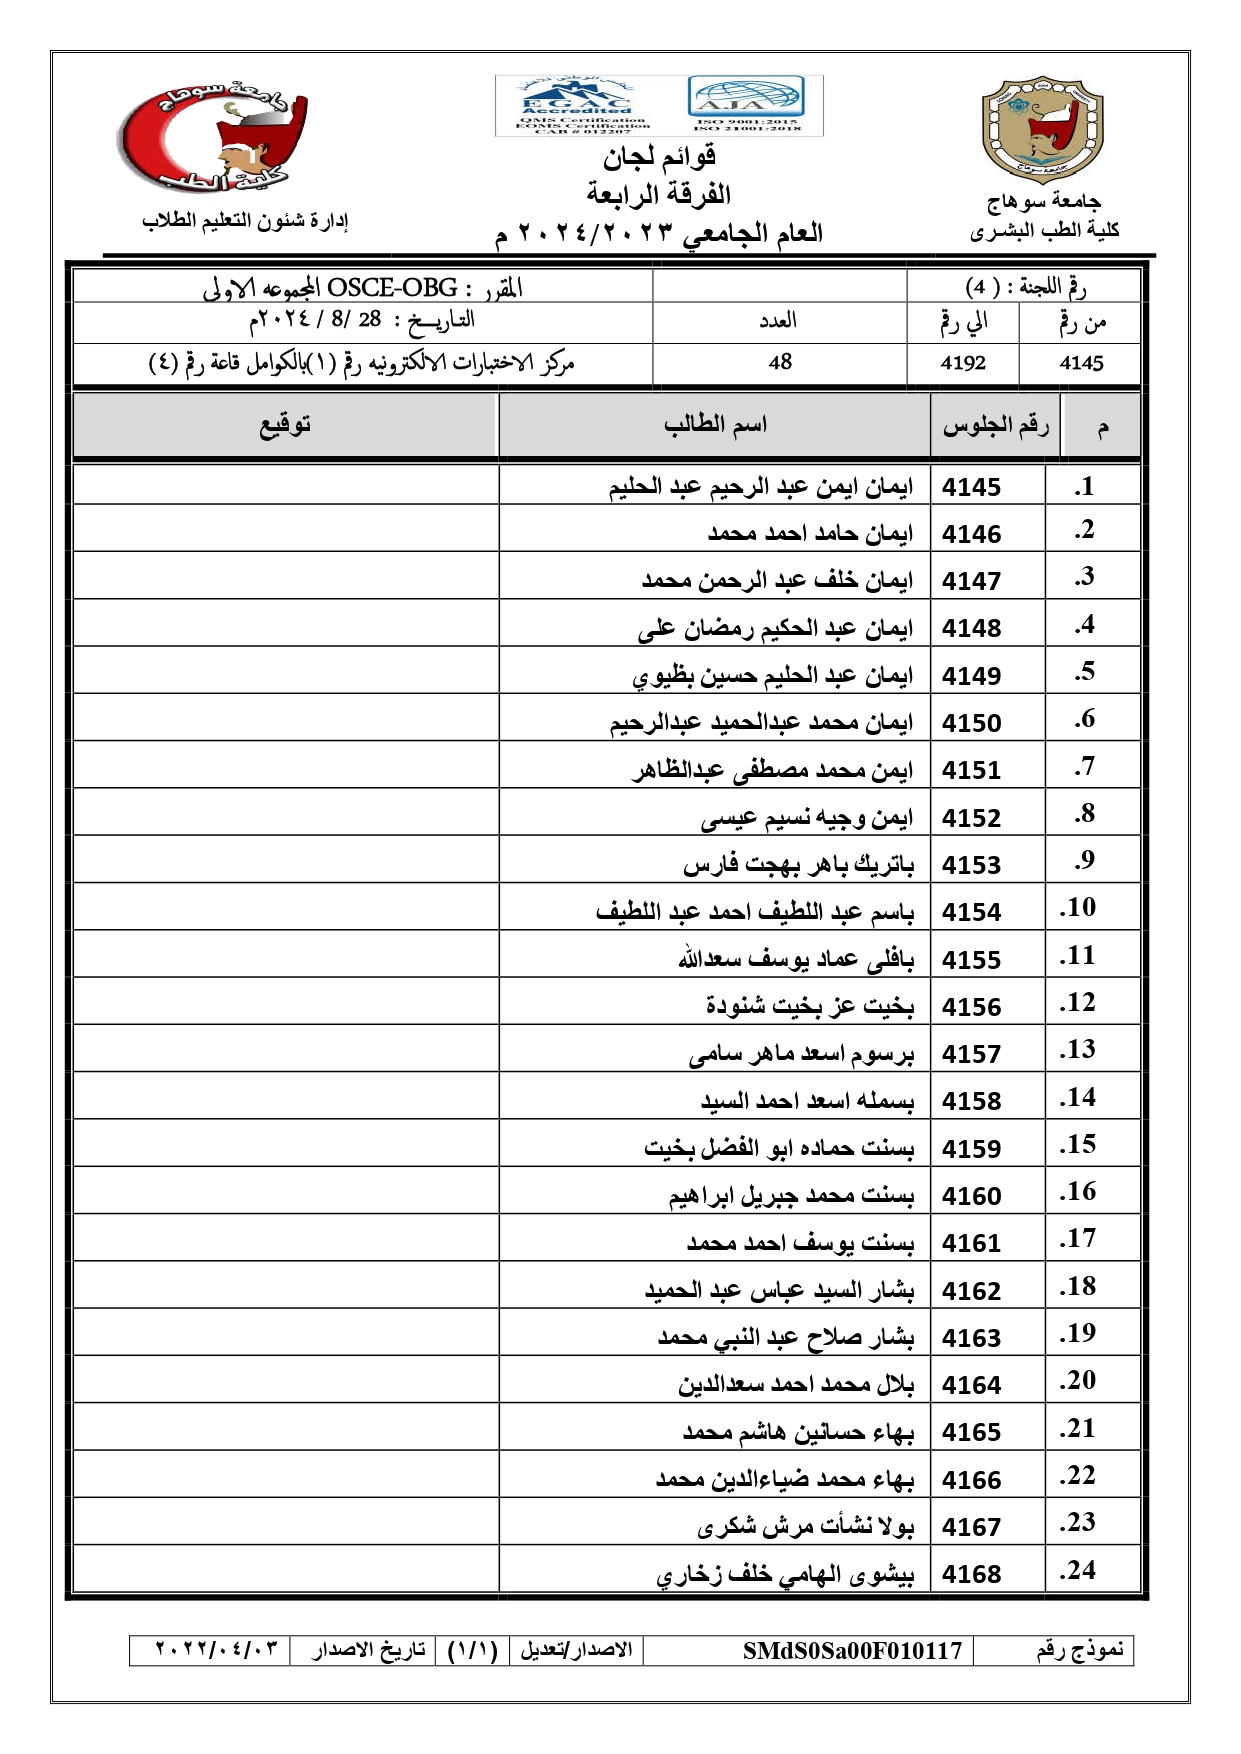 جامعة سوهاج
كلية الطب
إدارة شئون التعليم الطلاب
EGAC
Accredited
QMS Certification
EOMS Certification
CAB # 012207
AJA
ISO 9001:2015
ISO 21001:2018
قوائم لجان
الفرقة الرابعة
العام الجامعي ٢٠٢٤/٢٠٢٣ م
جامعة سوهاج
جامعة سوهاج
كلية الطب البشرى
رقم اللجنة : ( 4) المقرر : OSCE-OBG المجموعه الاولى
من رقم الي رقم العدد التاريـخ : 28 /8 / ٢٠٢٤م
4145 4192 48 مركز الاختبارات الالكترونيه رقم (١)بالكوامل قاعة رقم (٤)
م رقم الجلوس اسم الطالب توقيع
1. 4145 ايمان ايمن عبد الرحيم عبد الحليم
2. 4146 ايمان حامد احمد محمد
3. 4147 ايمان خلف عبد الرحمن محمد
4. 4148 ايمان عبد الحكيم رمضان على
5. 4149 ايمان عبد الحليم حسين بظيوي
6. 4150 ايمان محمد عبدالحميد عبدالرحيم
7. 4151 ايمن محمد مصطفى عبدالظاهر
8. 4152 ايمن وجيه نسيم عيسى
9. 4153 باتريك باهر بهجت فارس
10. 4154 باسم عبد اللطيف احمد عبد اللطيف
11. 4155 بافلى عماد يوسف سعدالله
12. 4156 بخيت عز بخيت شنودة
13. 4157 برسوم اسعد ماهر سامى
14. 4158 بسمله اسعد احمد السيد
15. 4159 بسنت حماده ابو الفضل بخيت
16. 4160 بسنت محمد جبريل ابراهيم
17. 4161 بسنت يوسف احمد محمد
18. 4162 بشار السيد عباس عبد الحميد
19. 4163 بشار صلاح عبد النبي محمد
20. 4164 بلال محمد احمد سعدالدين
21. 4165 بهاء حسانين هاشم محمد
22. 4166 بهاء محمد ضياءالدين محمد
23. 4167 بولا نشأت مرش شكرى
24. 4168 بيشوى الهامي خلف زخاري
نموذج رقم SMdS0Sa00F010117 الاصدار/تعديل (١/١) تاريخ الاصدار ٢٠٢٢/٠٤/٠٣